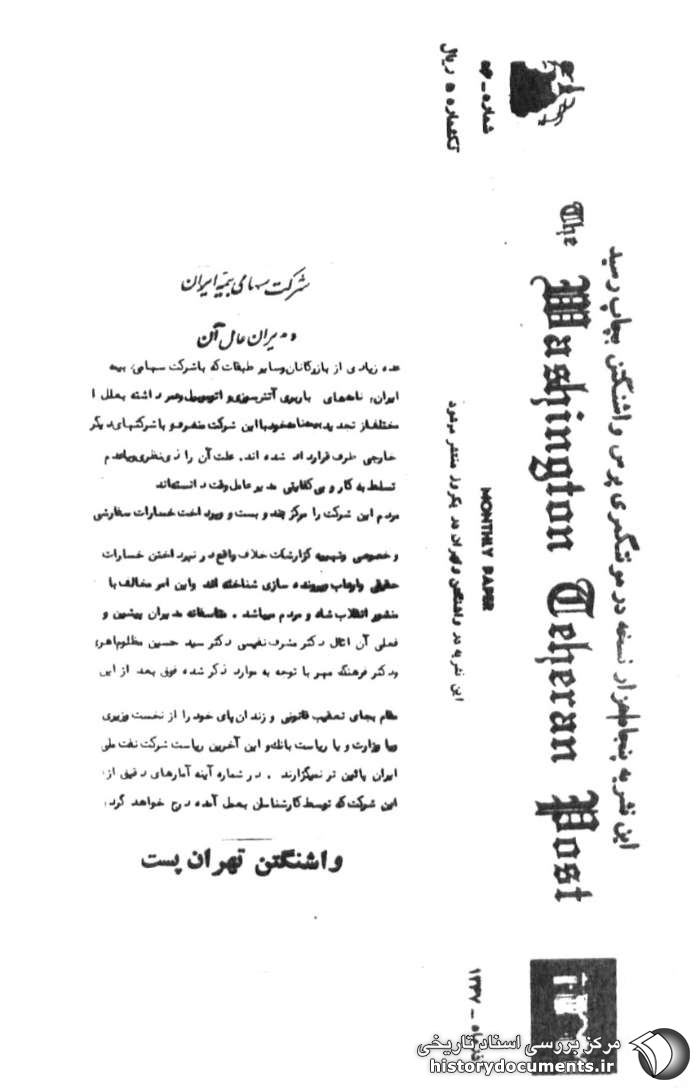 شماره - ۵۶
تکشماره ۵ ریال
این نشریه پنجاهزار نسخه در مونتگمری پرس واشنگتن بچاپ رسید
The Washington Teheran Post
MONTHLY PAPER
این نشریه در واشنگتن و تهران در یکروز منتشر میشود
۱۳۴۷
شرکت سهامی بیمه ایران
و مدیران عامل آن
عده زیادی از بازرگانان و سایر طبقات که با شرکت سهامی بیمه
ایران، باربری آتش‌سوزی و اتومبیل و عمر داشته بعلل
مختلف از تجدید بیمه‌نامه خود با این شرکت منصرف و با شرکتهای دیگر
خارجی طرف قرارداد شده اند. علت آن را ذی‌نظری و عدم
تسلط به کار و بی کفایتی مدیر عامل وقت دانسته‌اند
مردم این شرکت را مرکز بند و بست و پرداخت خسارات سفارشی
و خصوصی و تهیه گزارشات خلاف واقع در نپرداختن خسارات
حقیقی و ارعاب و پرونده سازی شناخته اند و این امر مخالف با
منشور انقلاب شاه و مردم میباشد. متاسفانه مدیران پیشین و
فعلی آن امثال دکتر مشرف نفیسی دکتر سید حسین مظلوم
و دکتر فرهنگ مهر با توجه به موارد ذکر شده فوق بعد از این
مقام بجای تعقیب قانونی و زندان پای خود را از نخست وزیری
و یا وزارت و یا ریاست بانک و این آخرین ریاست شرکت نفت ملی
ایران پائین تر نمیگزارند. در شماره آینه آمارهای دقیق از
این شرکت که توسط کارشناسان بعمل آمده درج خواهد گردد
واشنگتن تهران پست
مرکز بررسی اسناد تاریخی
historydocuments.ir